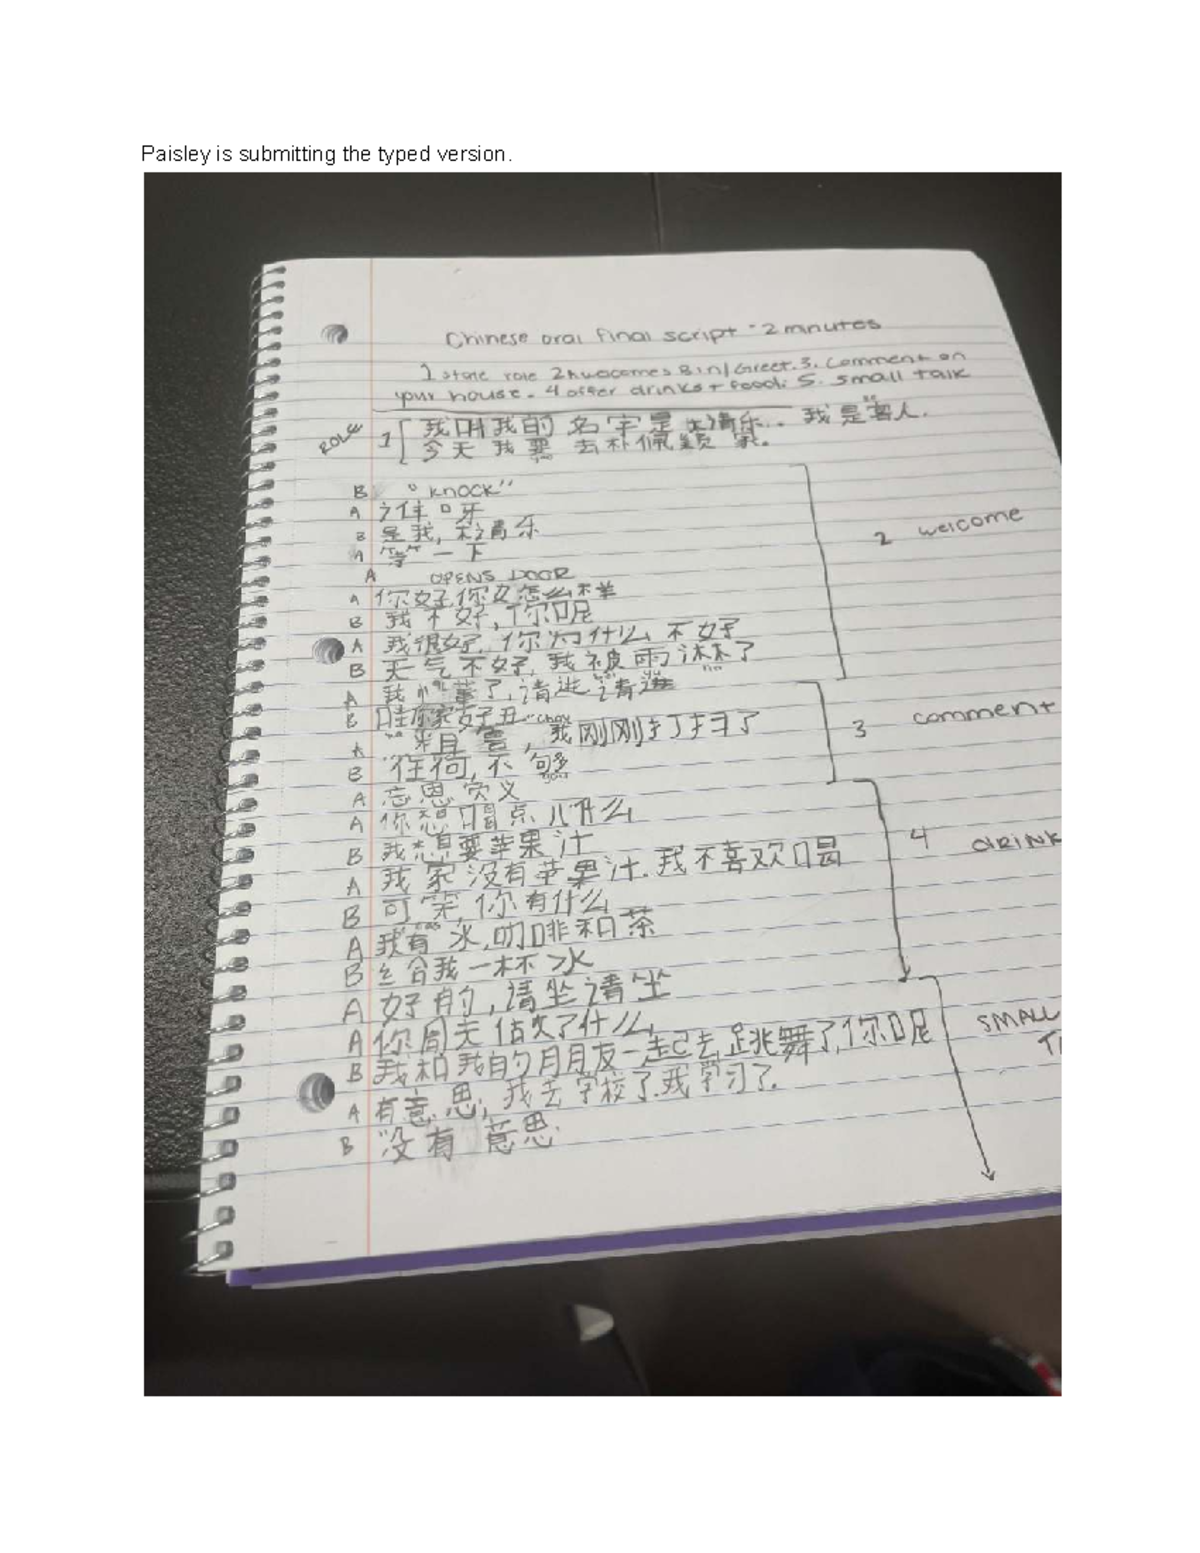 Paisley is submitting the typed version.
Chinese oral final script - 2 minutes
1 state role 2 welcomes B in/Greet. 3. comment on
your house. 4 offer drinks + food. 5. small talk
ROLE 1 我叫我的名字是 清乐.. 我是客人.
今天我要去朴佩颖家。
B "knock"
A 谁呀
B 是我, 清乐
A 等一下
A OPENS DOOR
A 你好你好怎么样
B 我不好, 你呢
A 我很好, 你为什么不好
B 天气不好, 我被雨淋了
2 welcome
A 我 了, 请进请进
B 哇你家好丑
A 粗鲁, 我刚刚打扫了
B 任何, 不够
3 comment
A
A 你想喝点儿什么
B 我想要苹果汁
A 我家没有苹果汁. 我不喜欢喝
B 可笑, 你有什么
A 我有水, 咖啡和茶
B 给我一杯水
A 好的, 请坐请坐
4 drink
A 你周末做了什么
B 我和我的朋友一起去跳舞了, 你呢
A 有意思, 我去学校了. 我学习了.
B 没有意思.
SMALL